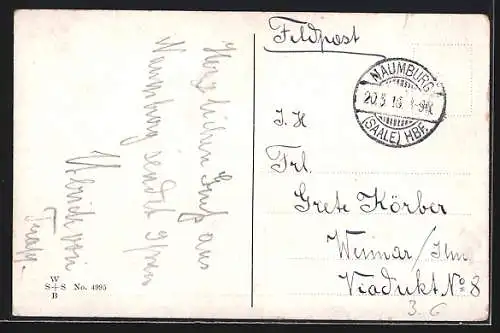 Feldpost
NAUMBURG
20.5.16. 8-9N.
(SAALE) HBF.
J. H
Frl.
Grete Körber
Weimar/Ilm
Viadukt No 8
3.6
Herzlichen Gruß aus
Naumburg sendet Ihnen
Ulrich von
W
S+S No. 4995
B